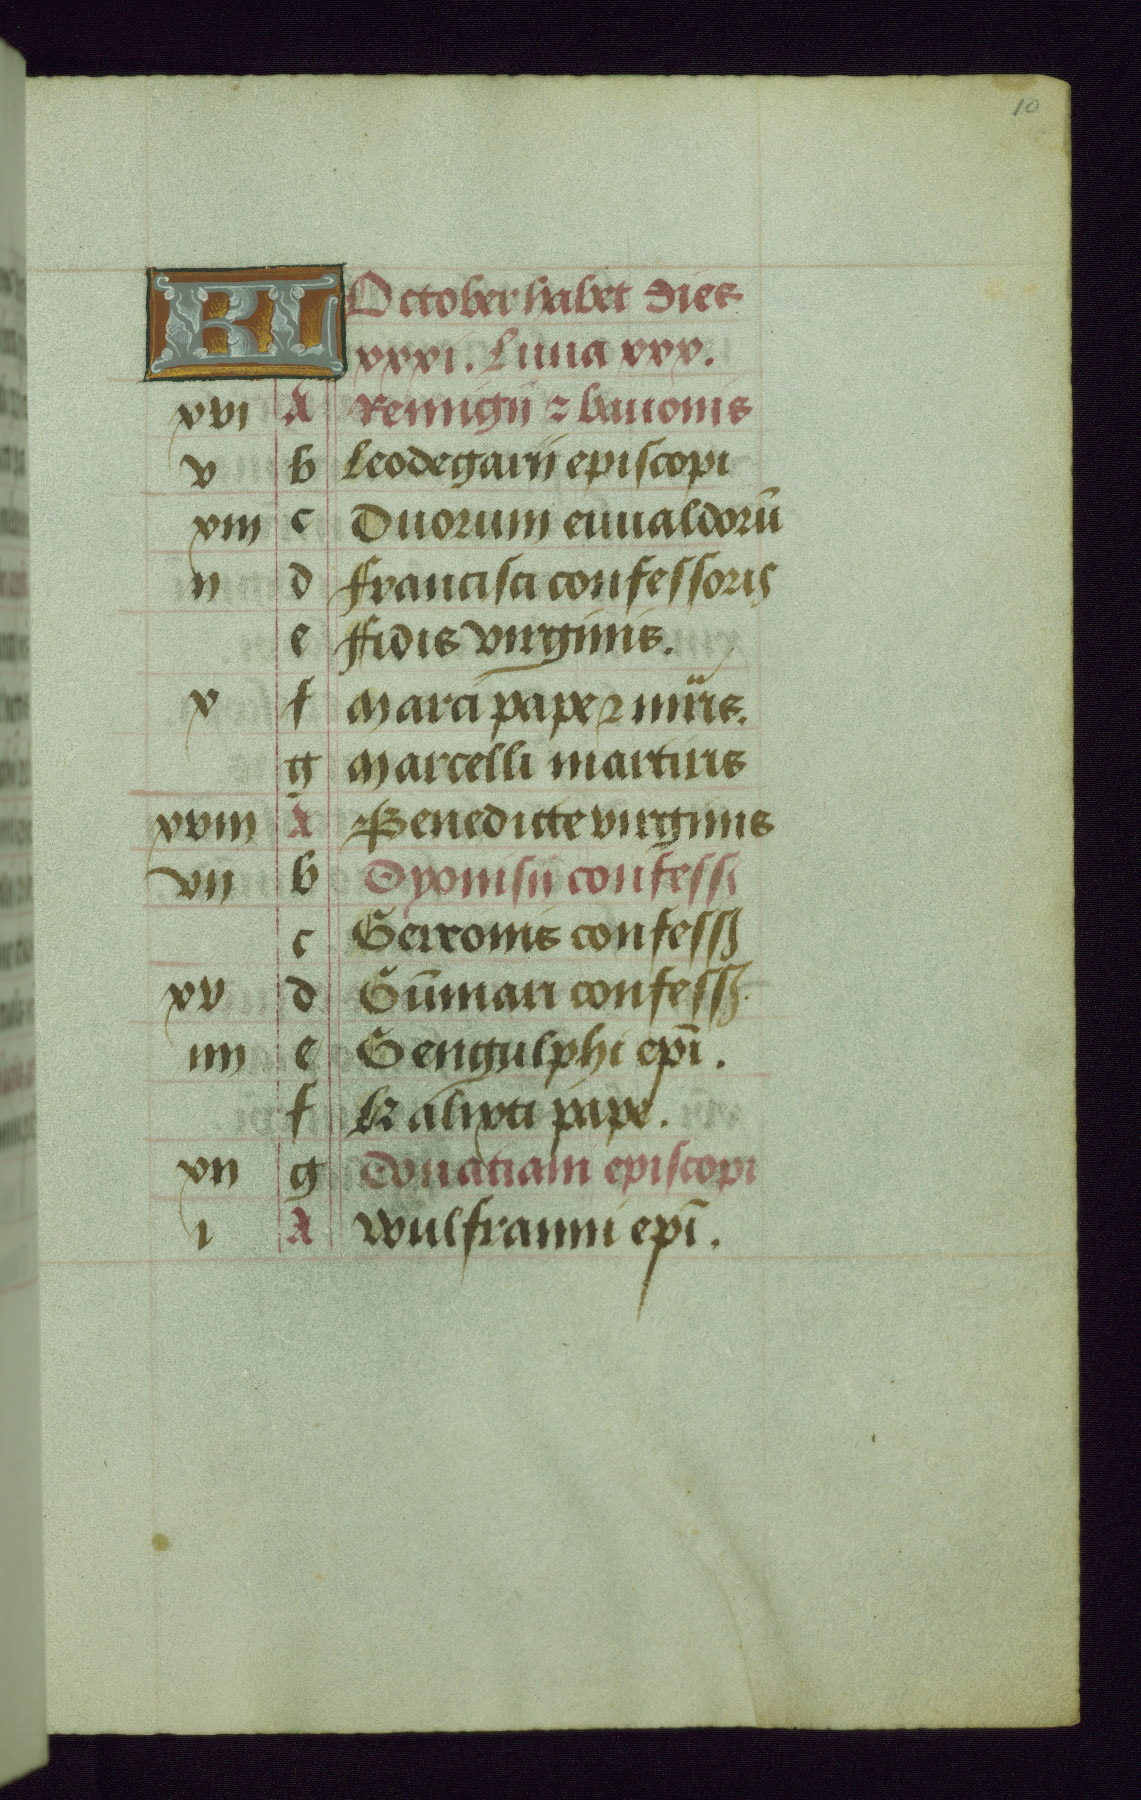 10
KL October habet dies
xxxi. Luna xxx.
xvi A Remigii ⁊ bauonis
v b Leodegarii episcopi
xiii c Duorum euualdorū
ii d Francisci confessoris
e Fidis virginis.
x f Marci pape ⁊ mr̄is.
g Marcelli martiris
xviii A Benedicte virginis
vii b Dyonisii confessi
c Gerronis confess
xv d Gūmari confess
iiii e Gengulphi epī.
f Kalixti pape.
xii g Donatiani episcopi
i A Wulfranni epī.